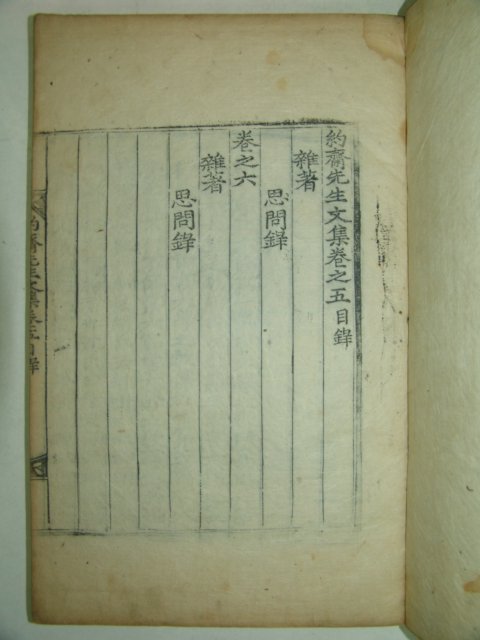 約齋先生文集卷之五目錄
雜著
思問錄
卷之六
雜著
思問錄
約齋先生文集卷之五目錄